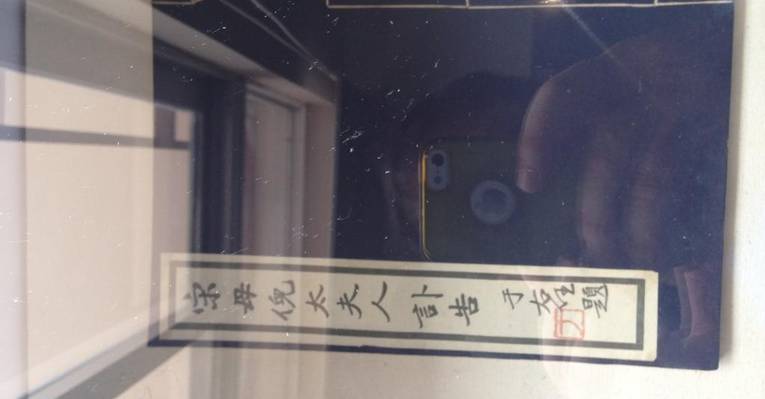 宋母倪太夫人訃告 于右任題